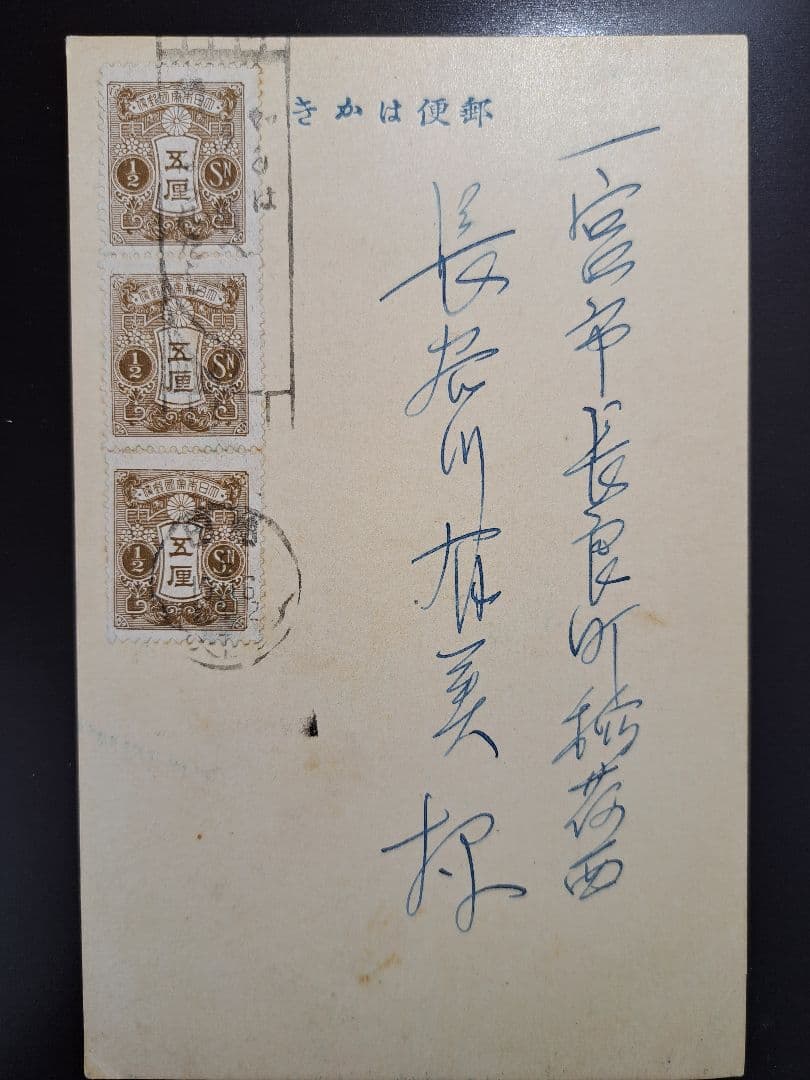 郵便はかき
一宮市長良町稲荷西
長谷川有美様
大日本帝國郵便
五厘
1/2
Sɴ
大日本帝國郵便
五厘
1/2
Sɴ
大日本帝國郵便
五厘
1/2
Sɴ